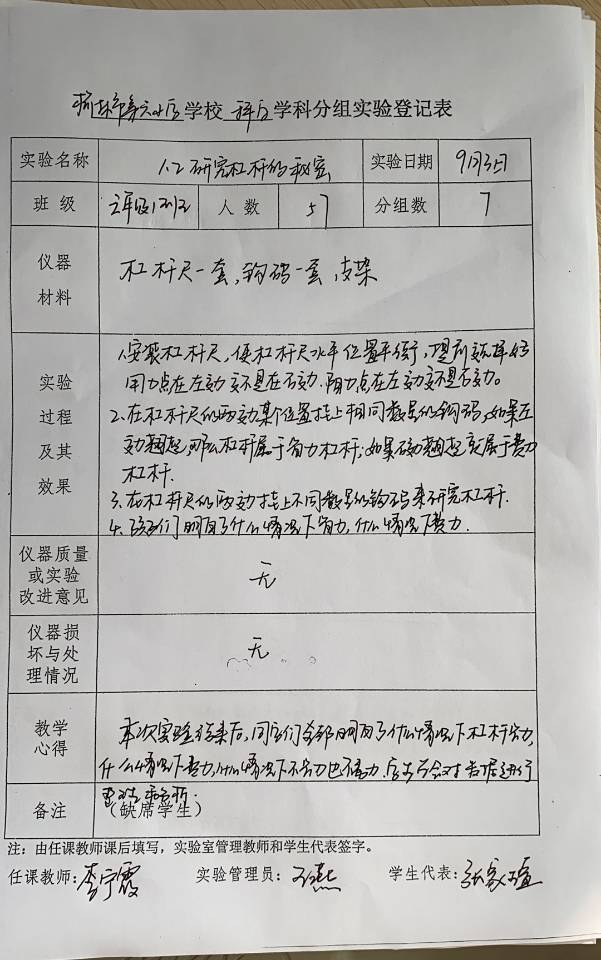 榆林市第六小学学校 科学学科分组实验登记表
实验名称 1.2研究杠杆的秘密 实验日期 9月3日
班 级 六年级1班 人 数 57 分组数 7
仪器
材料
杠杆尺一套,钩码一套,支架
实验
过程
及其
效果
1.安装杠杆尺,使杠杆尺水平位置平衡,
用力点在左边还是在右边,阻力点在左边还是右边。
2.在杠杆尺的两边某个位置挂上相同数量的钩码,如果左
边翘起,那么杠杆属于省力杠杆;如果右边翘起就属于费力
杠杆.
3.在杠杆尺的两边挂上不同数量的钩码来研究杠杆.
4.孩子们明白了什么情况下省力,什么情况下费力.
仪器质量
或实验
改进意见
无
仪器损
坏与处
理情况
无
教学
心得
本次实验结束后,同学们全部明白了什么情况下杠杆省力,
什么情况下费力,什么情况下不省力也不费力.学生学会对数据进行
整理与分析.
备注 (缺席学生)
注:由任课教师课后填写,实验室管理教师和学生代表签字。
任课教师:李宁霞 实验管理员: 学生代表: